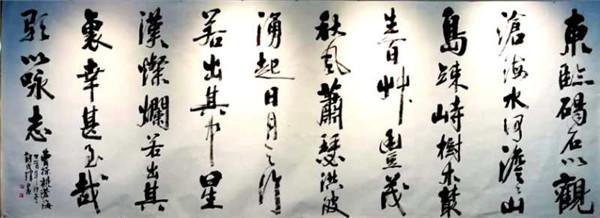 東臨碣石以觀
滄海水何澹々山
島竦峙樹木叢
生百艸豐茂
秋風蕭瑟洪波
湧起日月之行
若出其中星
漢燦爛若出其
裏幸甚至哉
歌以詠志
曹操觀滄海